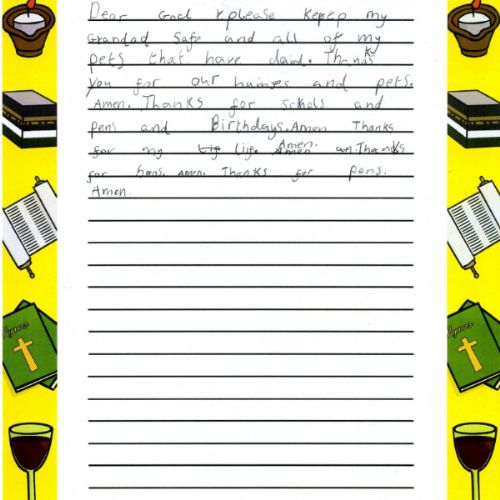 Dear God please keep my
Grandad safe and all of my
pets that have daid. Thanks
you for our humes and pets.
Amen. Thanks for schols and
pens and Birthdays. Amen Thanks
for my life. Amen. Thanks
for hens. Amen. Thanks for pens.
Amen.
Hymns